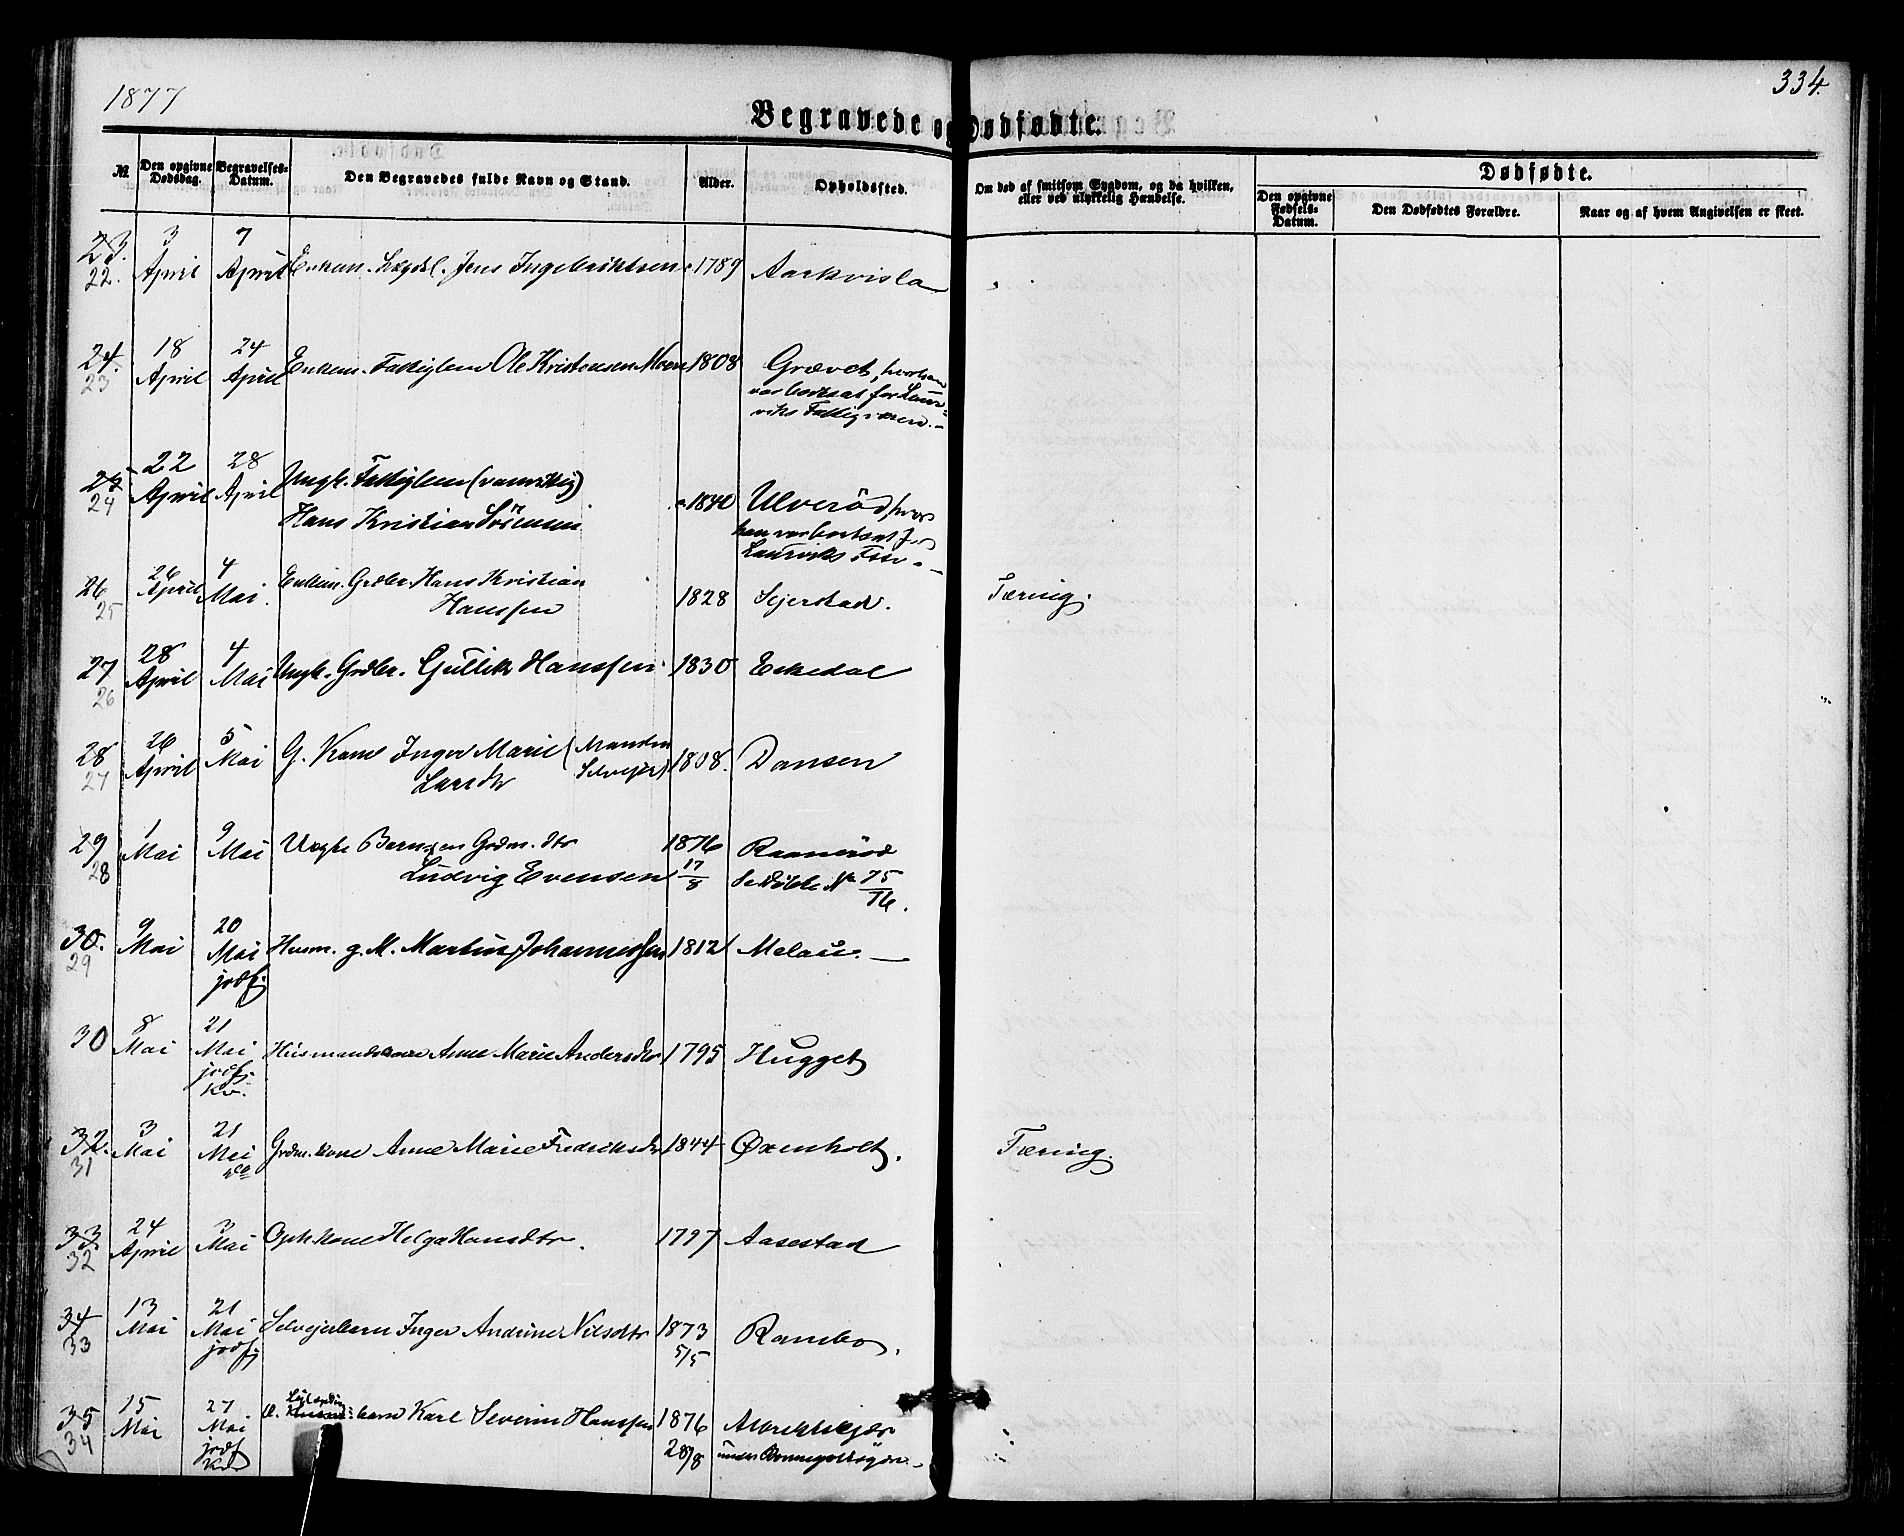 1877
334.
Begravede og Dødfødte.
№
Den opgivne Dødsdag.
Begravelses-Datum.
Den Begravedes fulde Navn og Stand.
Alder.
Opholdssted.
Om død af smitsom Sygdom, og da hvilken, eller ved ulykkelig Hændelse.
Dødfødte.
Den opgivne Fødsels-Datum.
Den Dødfødtes Forældre.
Naar og af hvem Angivelsen er skeet.
23. 3 7
22. April April Enkem. Lægdsl. Jens Ingebriktsen 1789 Aarkvisla
24. 18 24
23 April April Enkem. Fattiglem Ole Kristensen Moen 1808 Grævet, hvor han
var bortsat for Laur-
viks Fattigvæsen.
25 22 28
24 April April Ungk. Fattiglem (vanvittig)
Hans Kristian Sörensen 1840 Ulveröd, hvor
han var bortsat for
Laurviks
26 26 4
25 April Mai Enkem. Grdbr. Hans Kristian
Hanssen 1828 Sjerstad. Tæring.
27 28 4
26 April Mai Ungk. Grdbr. Gullik Hanssen 1830 Eikedal
28 26 5
27 April Mai G. Kone Inger Marie (Manden
Larsdtr Selveier) 1808. Dansen
29 1 9
28 Mai Mai Ungk Barn en Grdm.
Ludvig Evensen 1876 17/8 Raaneröd
Se Döbte No 75/76.
30. 9 20
29 Mai Mai Husm. g. M. Martin Johannessen 1812 Melau.
jrdf.
30 8 21
Mai Mai Husmandskone Anne Marie Andersdtr 1795 Hugget
jrdf.
Kv.
32. 3 21
31 Mai Mai Grdm.kone Anne Marie Fredriksdtr 1844 Øxenholt. Tæring.
33. 24 3
32 April Mai kone Helga Hansdtr. 1797 Aasestad
34 13 21
33 Mai Mai Selveierbarn Inger Andrine Nilsdtr 1873 Rambo.
jrdf 5/5
35 15 27
34 Mai Mai barn Karl Severin Hanssen 1876
jrdf 28/8 under
Kv